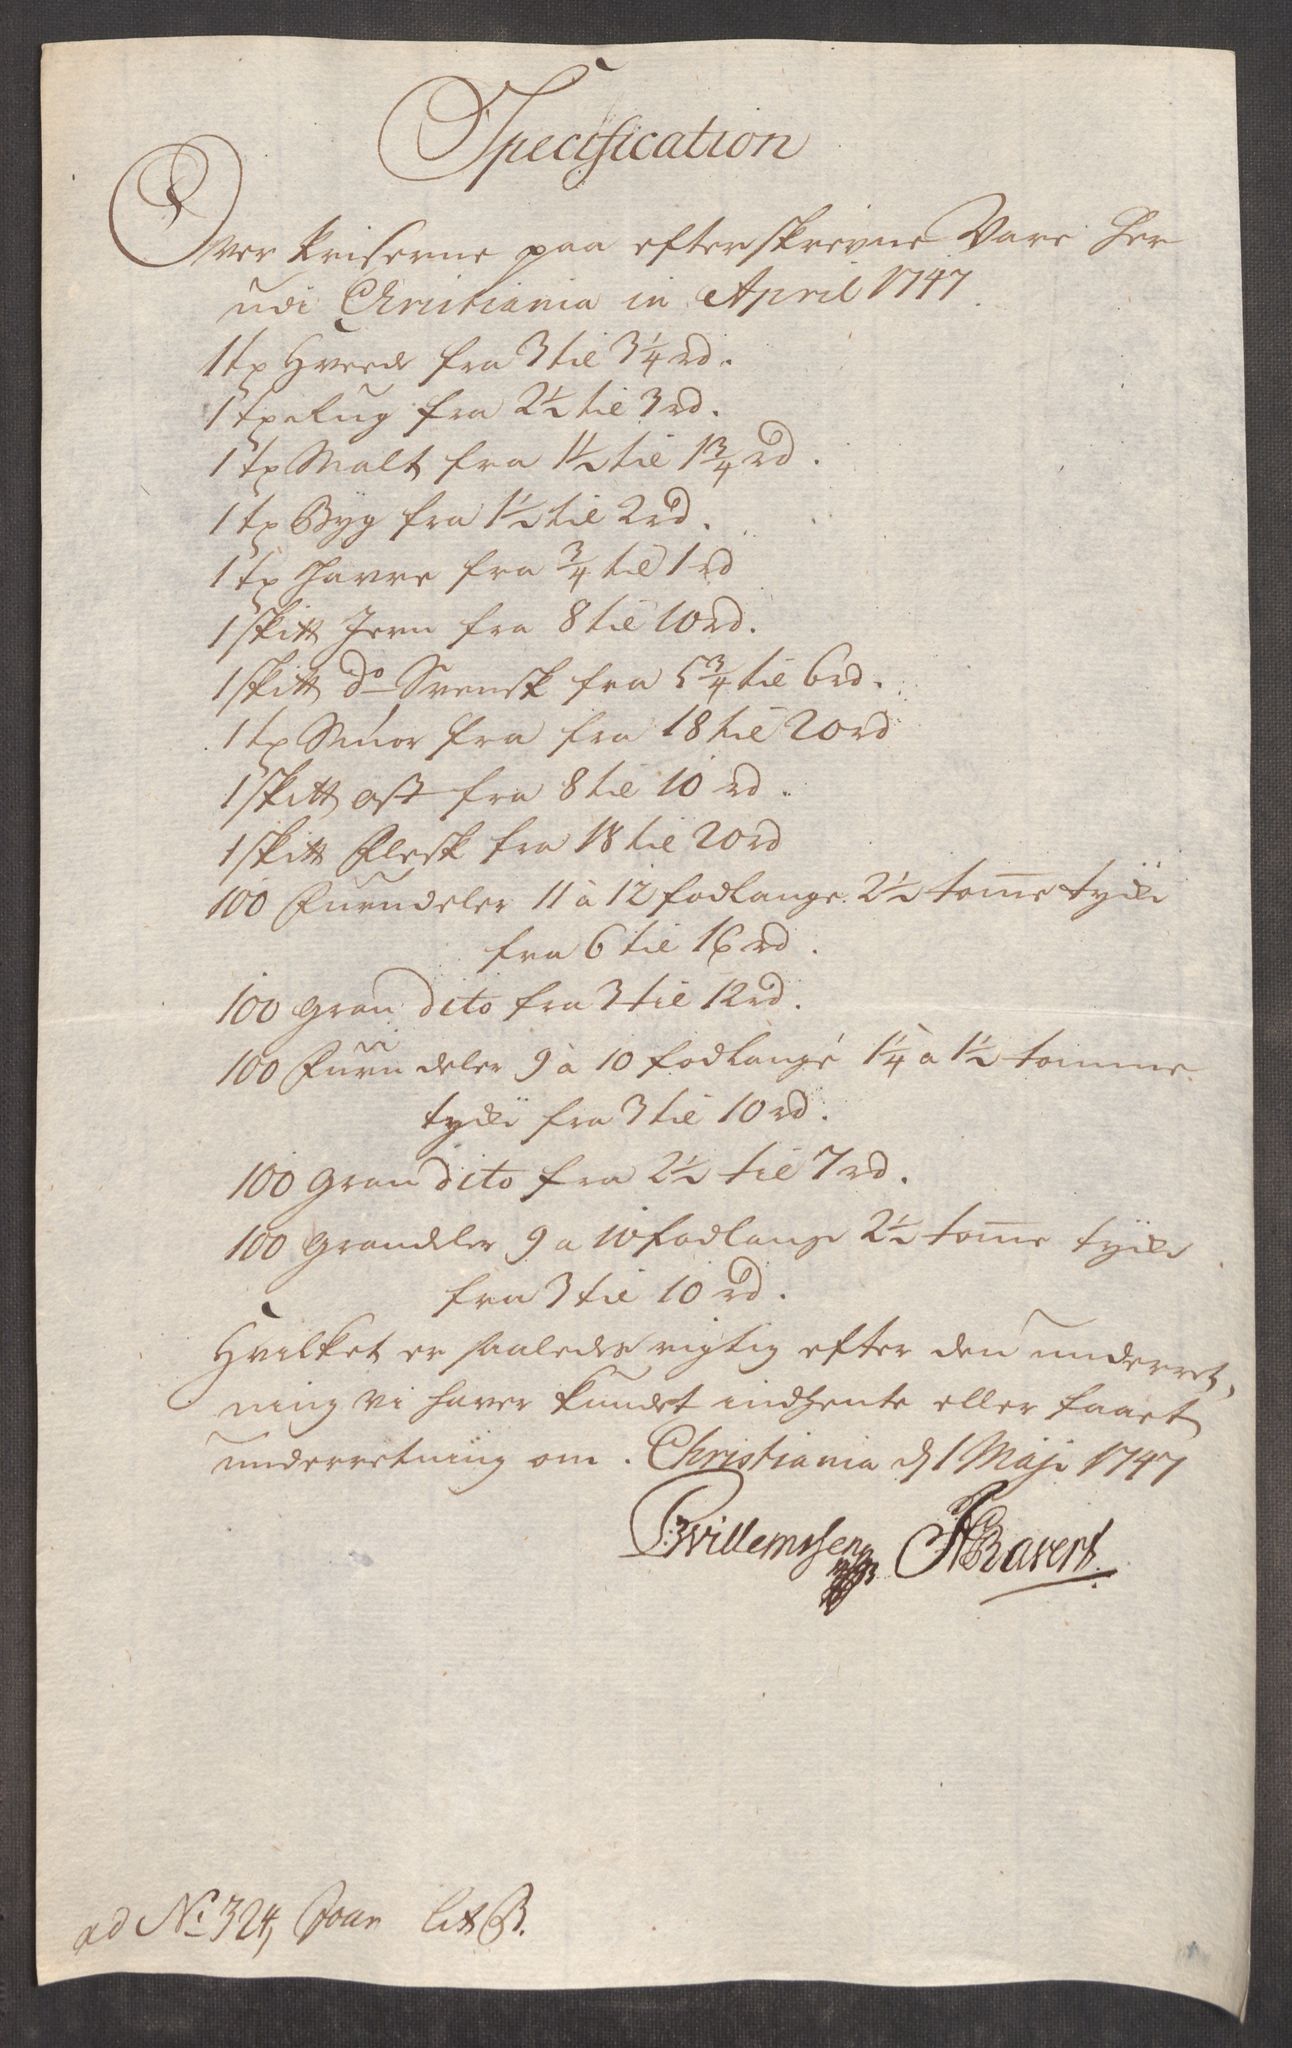 Specification
Over Priserne paa efterskrevne Vare her
udi Christiania in April 1747.
1 tø Hvede fra 3 til 3 1/4 rd.
1 tø Rug fra 2 1/2 til 3 rd.
1 tø Malt fra 1 1/2 til 1 3/4 rd.
1 tø Byg fra 1 1/2 til 2 rd.
1 tø Havre fra 3/4 til 1 rd
1 skitt Jern fra 8 til 10 rd.
1 skitt do Svensk fra 5 3/4 til 6 rd.
1 tø Smør fra fra 18 til 20 rd
1 skitt ost fra 8 til 10 rd.
1 skitt Flesk fra 18 til 20 rd
100 Furudeler 11 a 12 fodlange 2 1/2 tome tyke
fra 6 til 16 rd.
100 gran dito fra 3 til 12 rd.
100 Furu deler 9 à 10 fodlange 1 1/4 a 1 1/2 tomme
tyke fra 3 til 10 rd.
100 gran dito fra 2 1/2 til 7 rd.
100 grandeler 9 a 10 fodlange 2 1/2 tome tyke
fra 3 til 10 rd.
Hvilket er saaledes rigtig efter den underret,
ning vi haver kundet indhente eller faaet
underretning om. Christiania d 1 Maji 1747
Willemssen Bavert.
ad No 324, lit B.